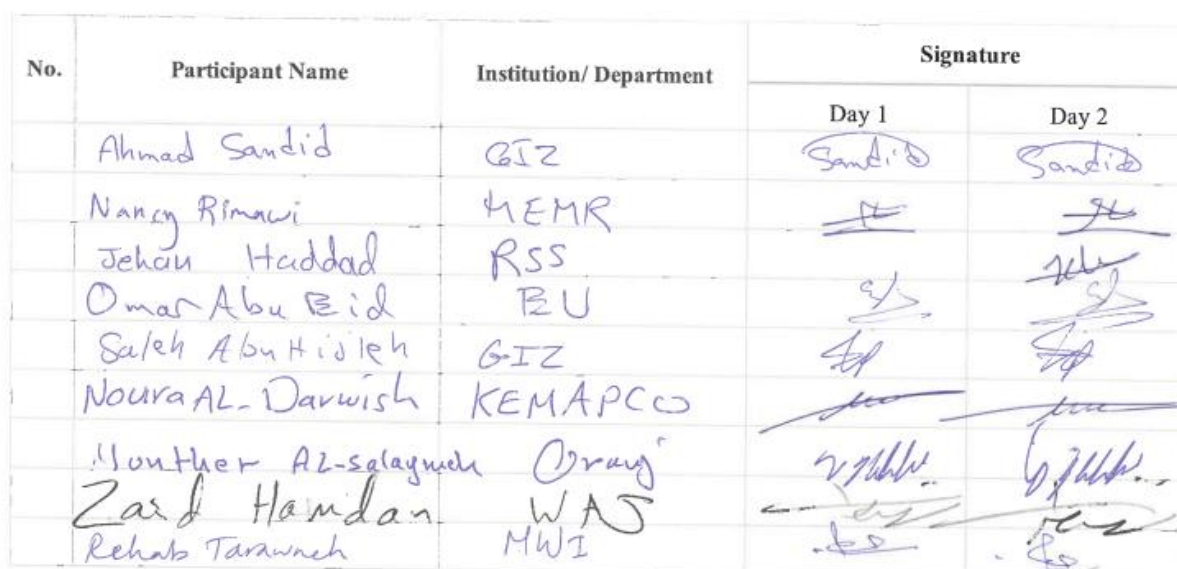 No. Participant Name Institution/ Department Signature
Day 1 Day 2
Ahmad Sandid GIZ Sandid Sandid
Nancy Rimawi MEMR
Jehan Haddad RSS
Omar Abu Eid EU
Saleh Abu Hijleh GIZ
Noura AL-Darwish KEMAPCO
Monther Al-salaymeh
Zaid Hamdan WAJ
Rehab Tarawneh MWI